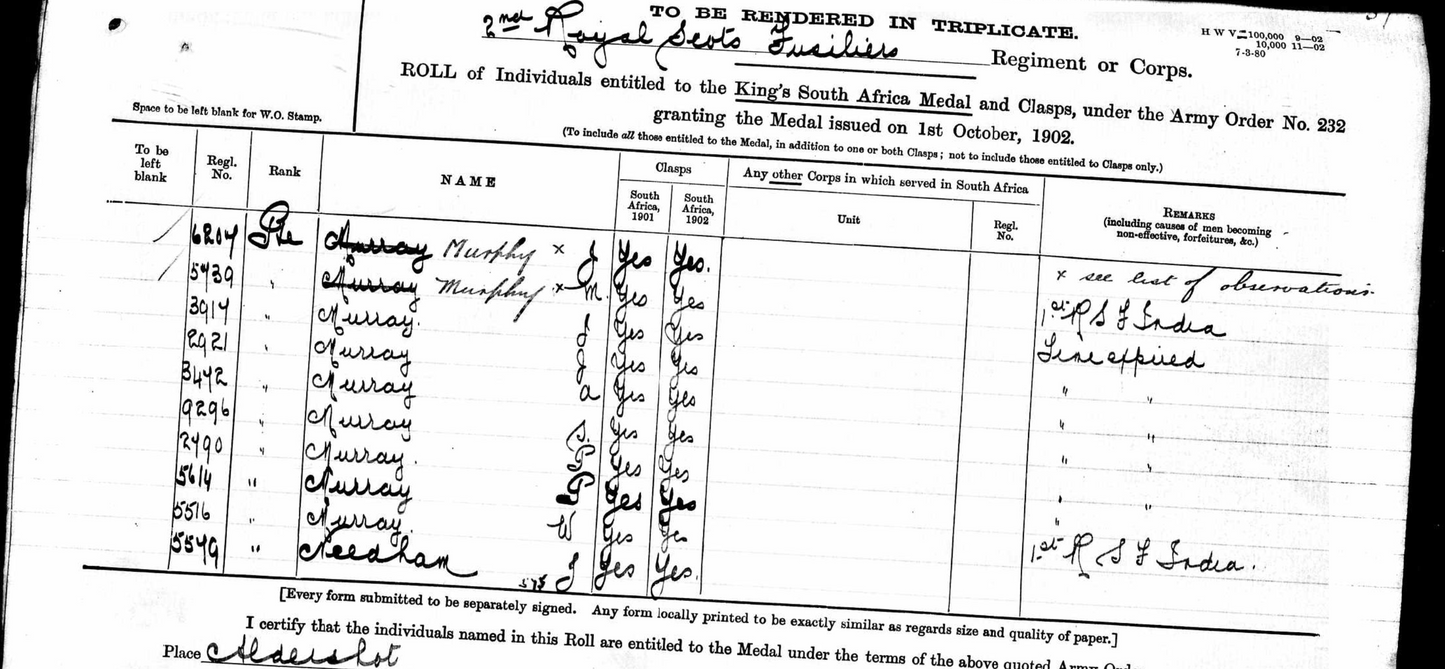 TO BE RENDERED IN TRIPLICATE.
H W V—100,000 9—02
10,000 11—02
7-3-80
2nd Royal Scots Fusiliers Regiment or Corps.
ROLL of Individuals entitled to the King's South Africa Medal and Clasps, under the Army Order No. 232
granting the Medal issued on 1st October, 1902.
Space to be left blank for W.O. Stamp.
(To include all those entitled to the Medal, in addition to one or both Clasps; not to include those entitled to Clasps only.)
To be left blank Regl. No. Rank NAME Clasps Any other Corps in which served in South Africa REMARKS
South Africa, 1901 South Africa, 1902 Unit Regl. No. (including causes of men becoming non-effective, forfeitures, &c.)
6204 Pte Murray Murphy × J Yes Yes. × see list of observations
5439 " Murray Murphy × M. Yes Yes
3914 " Murray. J Yes Yes 1st R S F India
2921 " Murray J Yes Yes Time expired
3472 " Murray A Yes Yes " "
9296 " Murray S. Yes Yes " "
2490 " Murray. P Yes Yes " "
5614 " Murray P Yes Yes " "
5516 " Murray. W Yes Yes "
5549 " Needham J Yes Yes. 1st R S F India.
[Every form submitted to be separately signed. Any form locally printed to be exactly similar as regards size and quality of paper.]
I certify that the individuals named in this Roll are entitled to the Medal under the terms of the above quoted Army
Place Aldershot